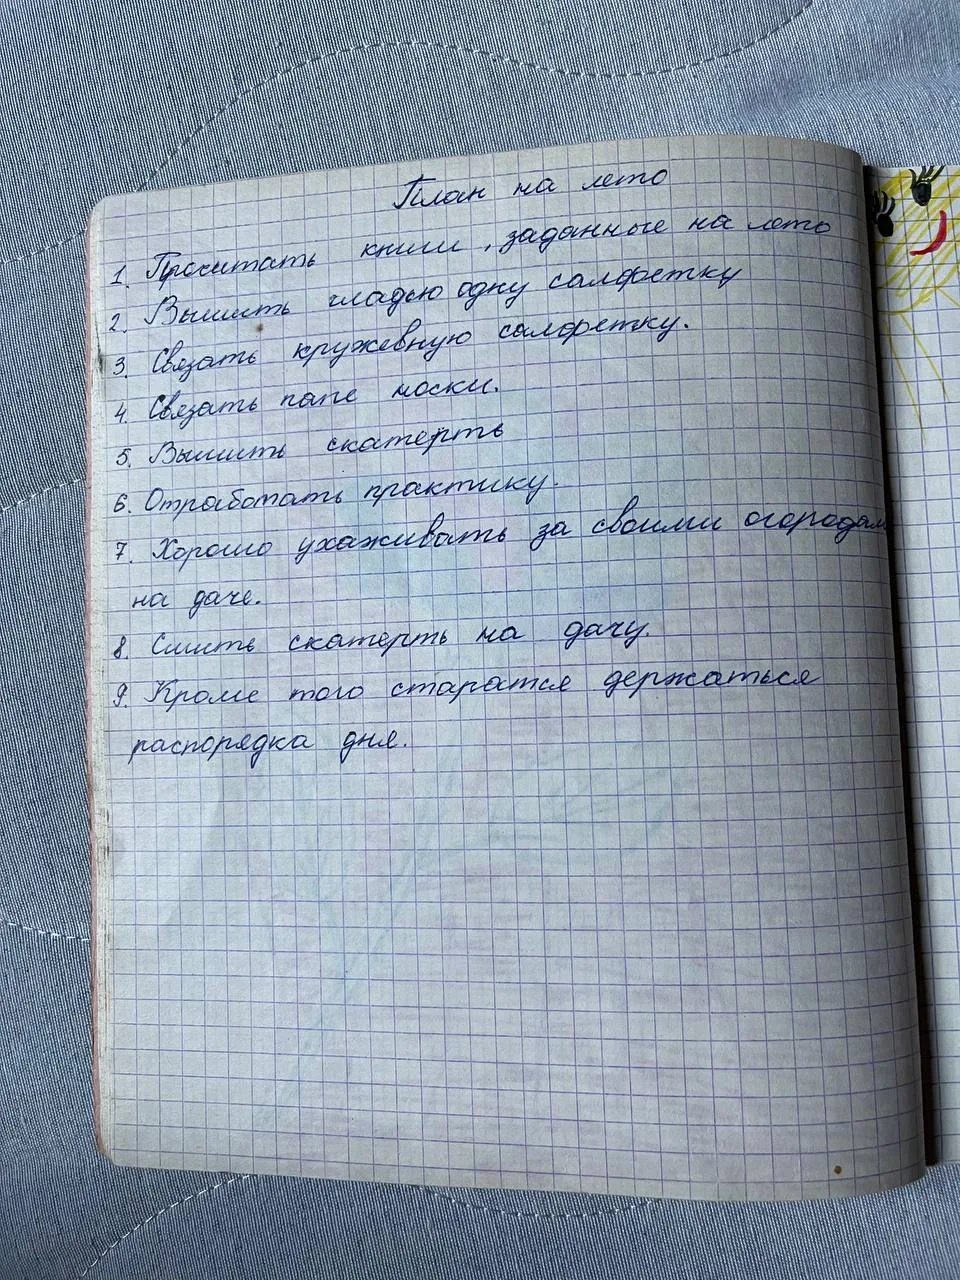 План на лето
1. Прочитать книги, заданные на лето
2. Вышить гладью одну салфетку
3. Связать кружевную салфетку.
4. Связать папе носки.
5. Вышить скатерть
6. Отработать практику.
7. Хорошо ухаживать за своими огородами
на даче.
8. Сшить скатерть на дачу.
9. Кроме того старатся держаться
распорядка дня.